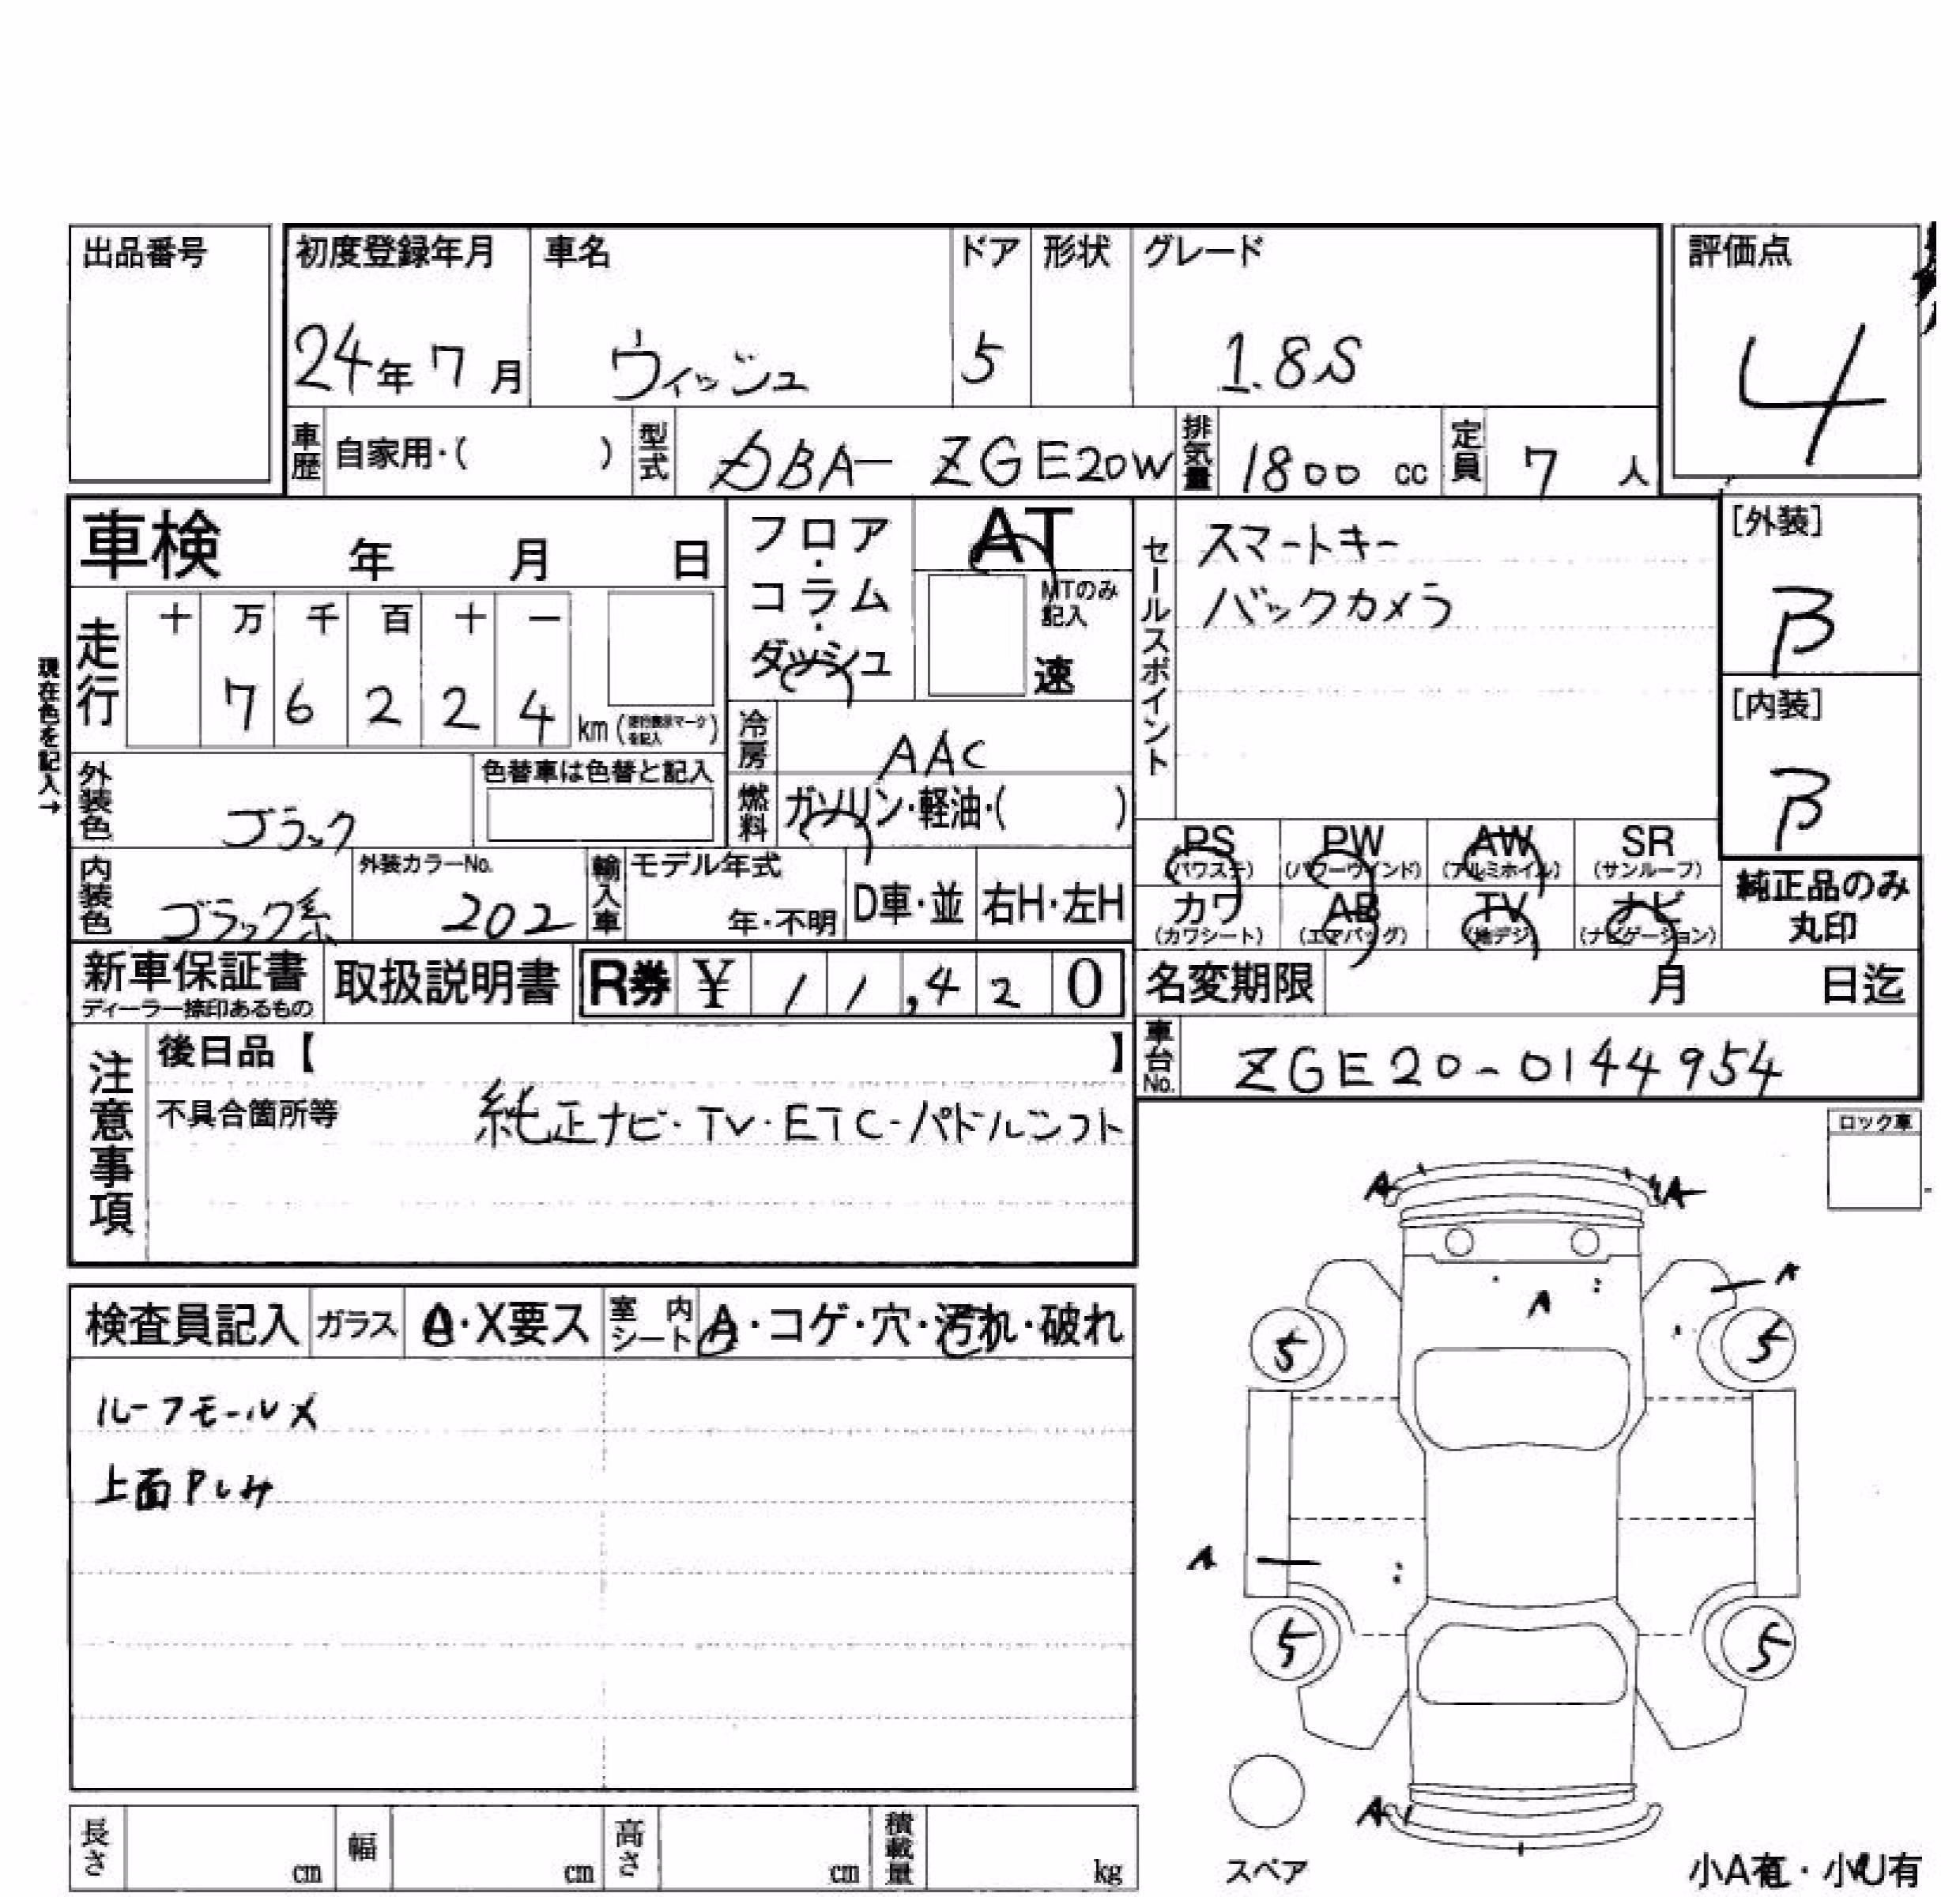 出品番号
初度登録年月 車名 ドア 形状 グレード 評価点
24年 7月 ウィッシュ 5 1.8S 4
車歴 自家用・( ) 型式 DBA- ZGE20W 排気量 1800 cc 定員 7 人
車検 年 月 日
フロア・コラム・ダッシュ
AT
MTのみ記入
速
セールスポイント
スマートキー
バックカメラ
[外装]
B
[内装]
B
現在色を記入→
走行 十 万 千 百 十 一
7 6 2 2 4 km (走行表示マークを記入)
冷房 AAC
燃料 ガソリン・軽油・( )
外装色 ブラック 色替車は色替と記入
内装色 ブラック系 外装カラーNo. 202 輸入車 モデル年式 年・不明 D車・並 右H・左H
PS (パワステ) PW (パワーウインド) AW (アルミホイル) SR (サンルーフ)
カワ (カワシート) AB (エアバッグ) TV (地デジ) ナビ (ナビゲーション)
純正品のみ
丸印
新車保証書 取扱説明書 R券 ¥ 1 1 , 4 2 0
ディーラー捺印あるもの
名変期限 月 日迄
車台No. ZGE20-0144954
注意事項
後日品【 】
不具合箇所等 純正ナビ・TV・ETC・パドルシフト
ロック車
検査員記入 ガラス A・X要ス 室内シート A・コゲ・穴・汚れ・破れ
ルーフモールX
上面Pしみ
A A
A A
5 5
A
5 5
A
スペア
小A有・小U有
長さ cm 幅 cm 高さ cm 積載量 kg